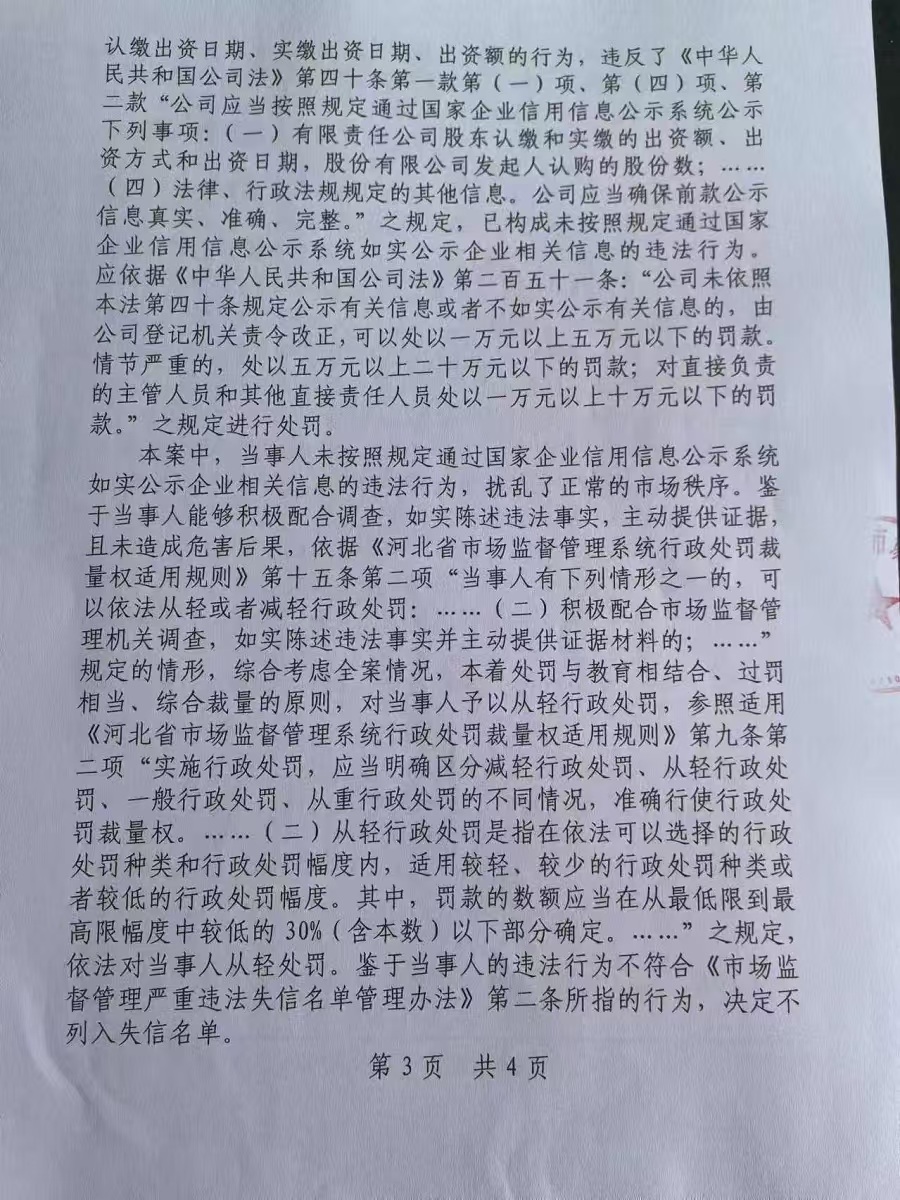 认缴出资日期、实缴出资日期、出资额的行为，违反了《中华人
民共和国公司法》第四十条第一款第（一）项、第（四）项、第
二款“公司应当按照规定通过国家企业信用信息公示系统公示
下列事项：（一）有限责任公司股东认缴和实缴的出资额、出
资方式和出资日期，股份有限公司发起人认购的股份数；……
（四）法律、行政法规规定的其他信息。公司应当确保前款公示
信息真实、准确、完整。”之规定，已构成未按照规定通过国家
企业信用信息公示系统如实公示企业相关信息的违法行为。
应依据《中华人民共和国公司法》第二百五十一条：“公司未依照
本法第四十条规定公示有关信息或者不如实公示有关信息的，由
公司登记机关责令改正，可以处以一万元以上五万元以下的罚款。
情节严重的，处以五万元以上二十万元以下的罚款；对直接负责
的主管人员和其他直接责任人员处以一万元以上十万元以下的罚
款。”之规定进行处罚。
本案中，当事人未按照规定通过国家企业信用信息公示系统
如实公示企业相关信息的违法行为，扰乱了正常的市场秩序。鉴
于当事人能够积极配合调查，如实陈述违法事实，主动提供证据，
且未造成危害后果，依据《河北省市场监督管理系统行政处罚裁
量权适用规则》第十五条第二项“当事人有下列情形之一的，可
以依法从轻或者减轻行政处罚：……（二）积极配合市场监督管
理机关调查，如实陈述违法事实并主动提供证据材料的；……”
规定的情形，综合考虑全案情况，本着处罚与教育相结合、过罚
相当、综合裁量的原则，对当事人予以从轻行政处罚，参照适用
《河北省市场监督管理系统行政处罚裁量权适用规则》第九条第
二项“实施行政处罚，应当明确区分减轻行政处罚、从轻行政处
罚、一般行政处罚、从重行政处罚的不同情况，准确行使行政处
罚裁量权。……（二）从轻行政处罚是指在依法可以选择的行政
处罚种类和行政处罚幅度内，适用较轻、较少的行政处罚种类或
者较低的行政处罚幅度。其中，罚款的数额应当在从最低限到最
高限幅度中较低的 30%（含本数）以下部分确定。……”之规定，
依法对当事人从轻处罚。鉴于当事人的违法行为不符合《市场监
督管理严重违法失信名单管理办法》第二条所指的行为，决定不
列入失信名单。
第 3 页 共 4 页